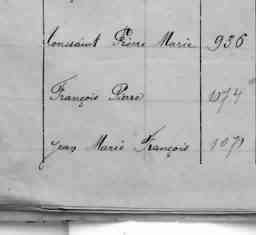 Toussaint Pierre Marie 936
François Pierre 1074
Jean Marie François 1071